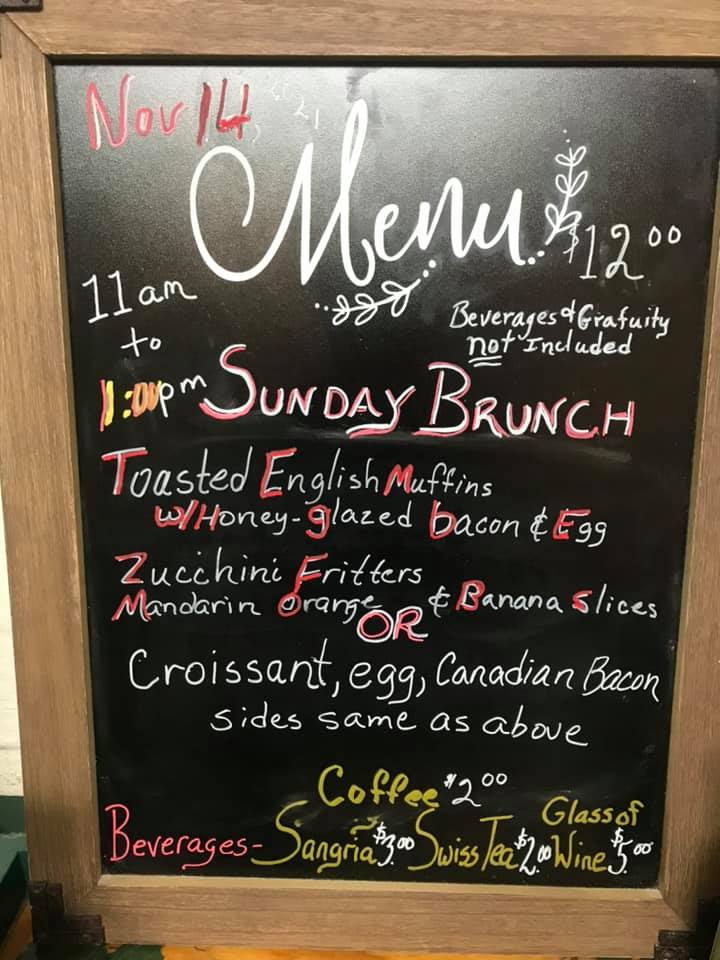 Nov 14
Menu
$12 00
11 am
to
1:00pm
Beverages & Grafuity
not Included
SUNDAY BRUNCH
Toasted English Muffins
w/Honey-glazed bacon & Egg
Zucchini Fritters
Mandarin Orange & Banana Slices
OR
Croissant, egg, Canadian Bacon
sides same as above
Coffee $2 00
Beverages- Sangria $3.00 Swiss Tea $2.00 Glass of Wine $5 00